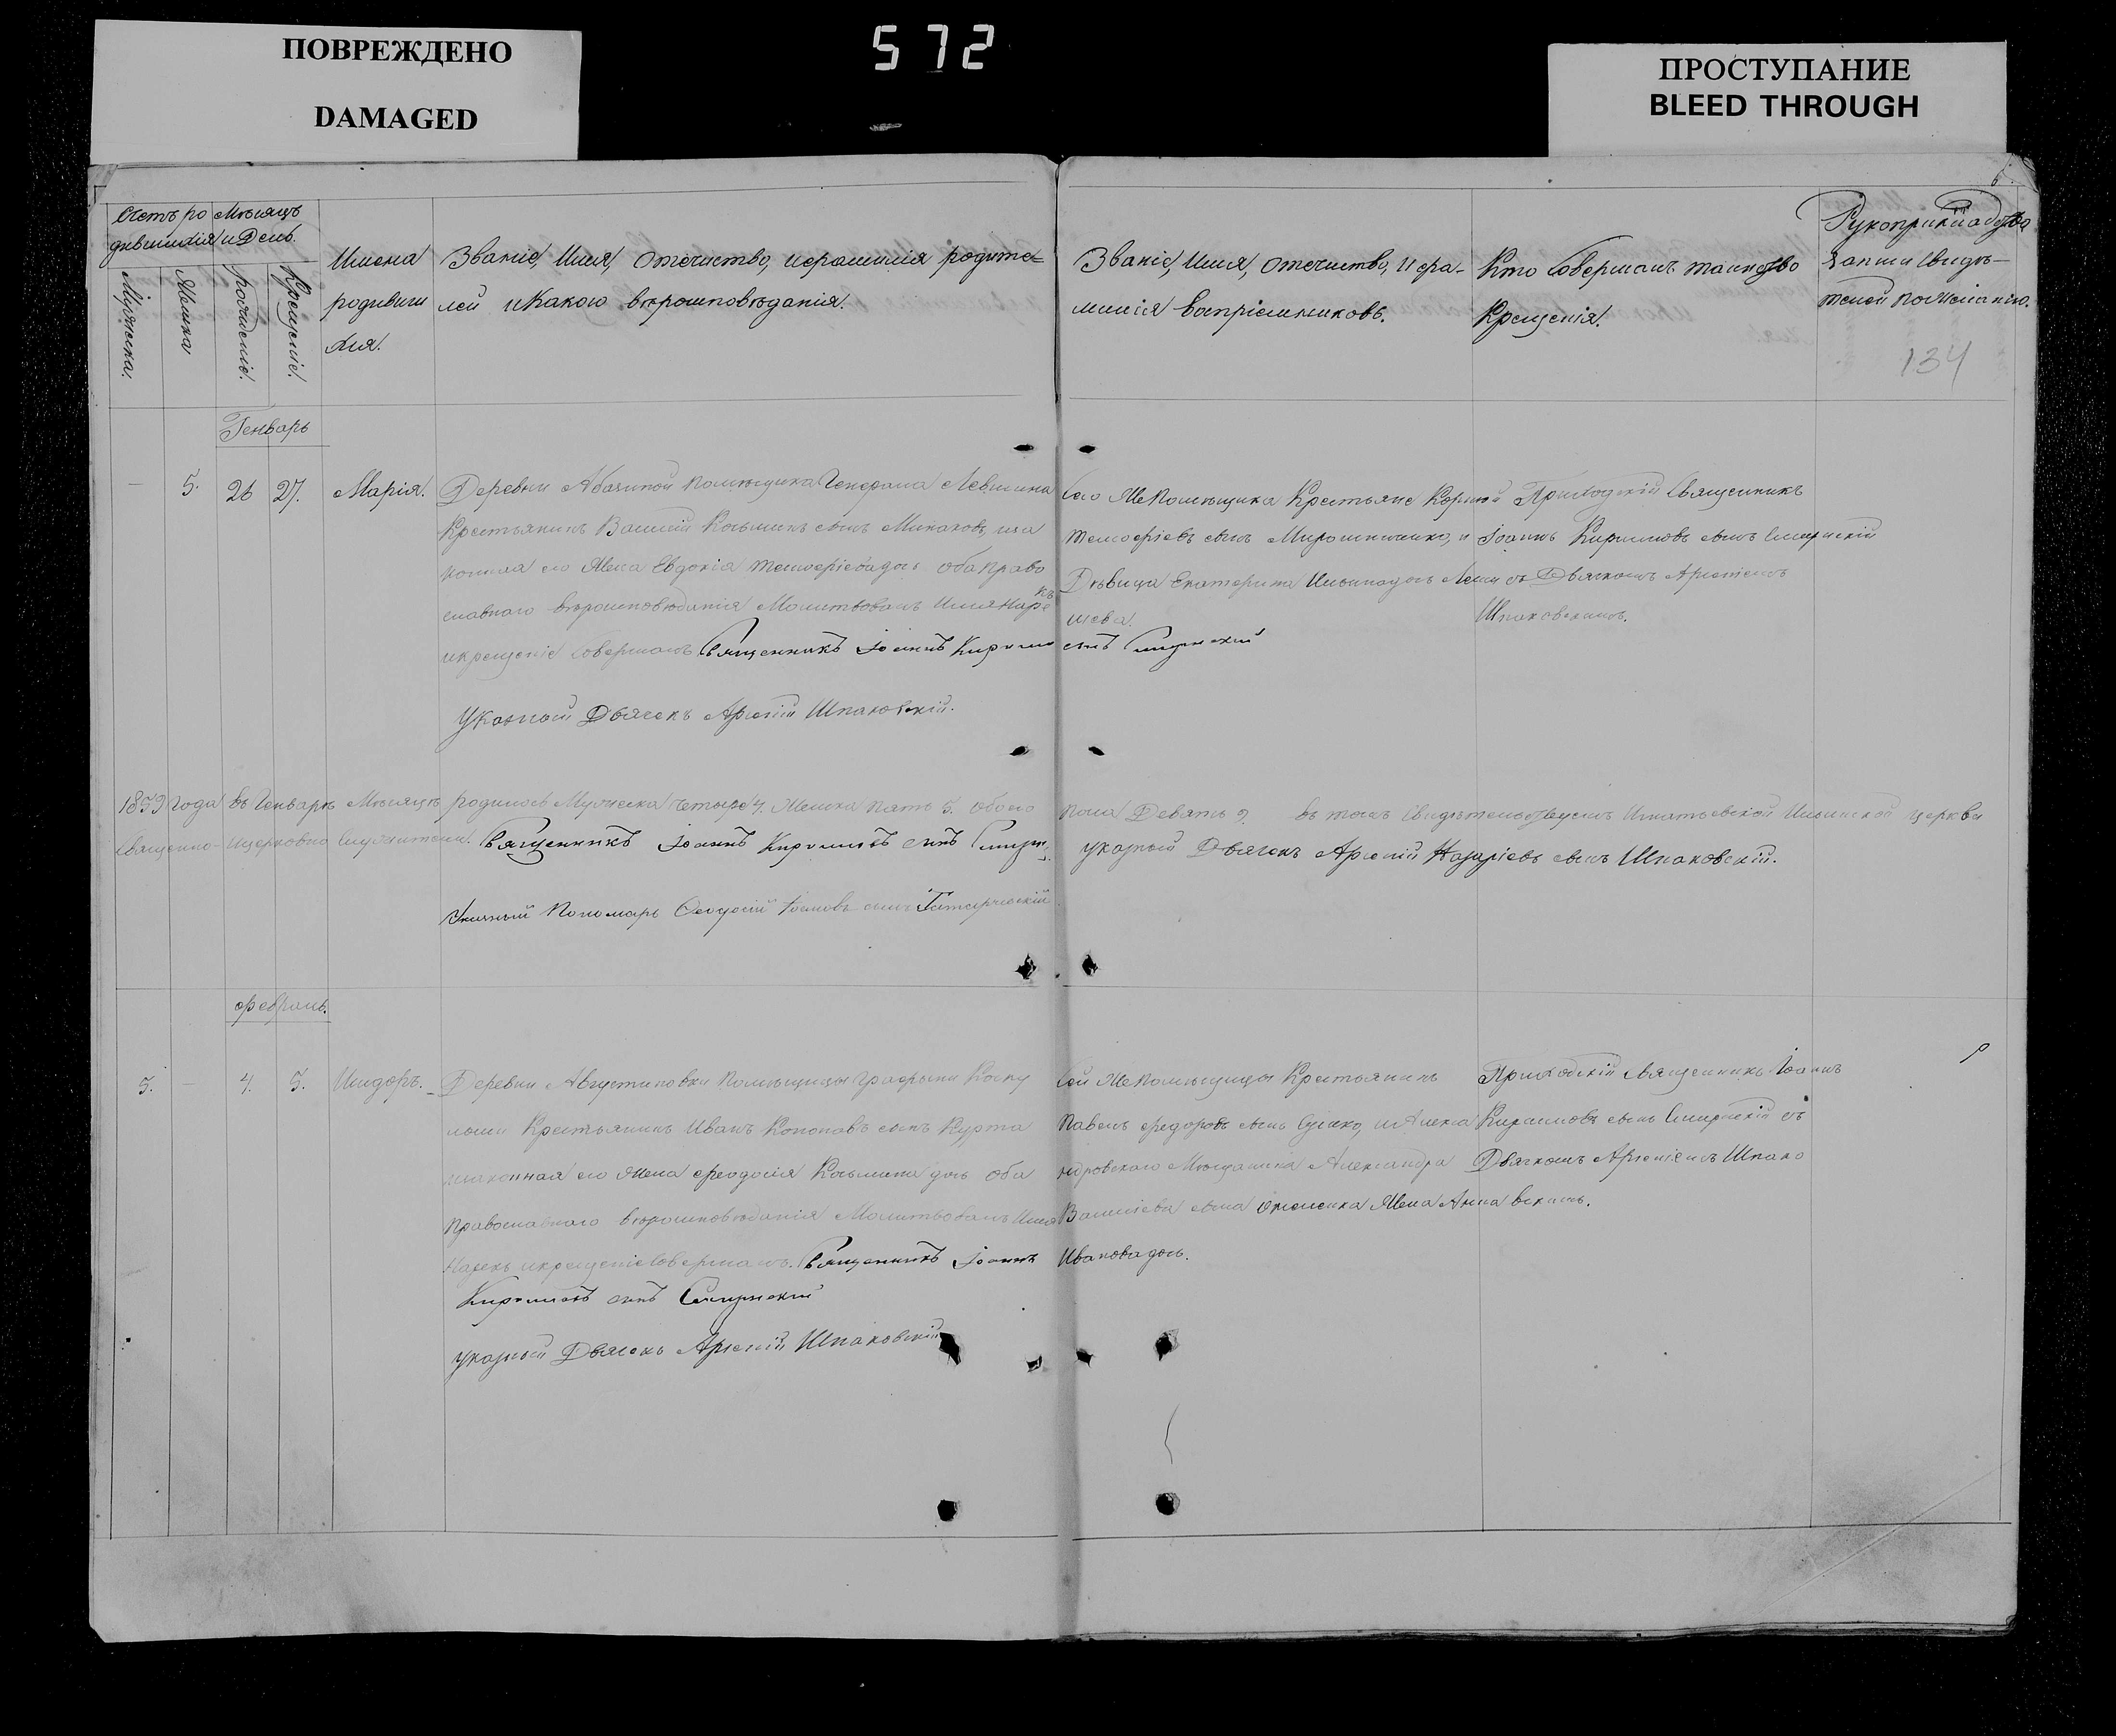 ПОВРЕЖДЕНО
DAMAGED
572
ПРОСТУПАНИЕ
BLEED THROUGH
Счетъ ро
дившихся
Мѣсяцъ
и День.
Мужеска.
Женска
рожденіе.
Крещеніе.
Имена
родивши
хся.
Званіе, Имя, Отечиство, ифамилія родите=
лей иКакого вѣроисповѣданія.
Званіе, Имя, Отечиство, Ифа-
милія Воспріемниковъ.
Кто Совершалъ таинство
Крещенія.
Рукоприкладство
Записи Свидѣ-
телей поЖеланію.
134
Генварь
— 5. 26 27. Марія.
Деревни Помѣщика Генерала Левшина
Крестьянинъ Василій Косминъ сынъ Минаковъ, иза
конная его Жена Евдокія дочь оба Право
славнаго вѣроисповѣданія Молитвовалъ Имя Наре
къ
икрещеніе Совершалъ Священникъ Іоаннъ Кирило
въ сынъ Смирнскій
Указный Дьячекъ Арсеній Шпаковскій.
того Же Помѣщика Крестьяне
сынъ Мирошниченко, и
Дѣвица Екатерина Ильинадочь
шева.
Приходскій Священникъ
Іоаннъ Кириловъ сынъ Смирнскій
съ Дьячкомъ Арсеніемъ
Шпаковскимъ.
1859 года въ Генварѣ Мѣсяцѣ родилось Мужеска четыре 4. Женска пять 5. обоего пола Девять 9. въ томъ Свидѣтельствуемъ Игнатьевской Ильинской церкви
Священно-ицерковно служители. Священникъ Іоаннъ Кириловъ сынъ указный Дьячекъ Арсеній Назаріевъ сынъ Шпаковскій.
Указный Пономарь Ѳеодосій сынъ
февраль.
5. — 4. 5. Исидоръ.
Деревни Августиновки Помѣщицы Графыни
Крестьянинъ Иванъ Кононовъ сынъ Курта
изаконная его Жена феодосія Космина дочь оба
Православнаго вѣроисповѣданія Молитвовалъ Имя
Нарекъ икрещеніе Совершалъ. Священникъ Іоаннъ
Кириловъ сынъ Смирнскій
указный Дьячекъ Арсеній Шпаковскій
той Же Помѣщицы Крестьянинъ
Павелъ федоровъ сынъ и Алекса
ндровскаго Мѣщанина Александра
Василіева сына Жена Анна
Ивановадочь.
Приходскій Священникъ Іоаннъ
Кириловъ сынъ Смирнскій съ
Дьячкомъ Арсеніемъ Шпако
вскимъ.